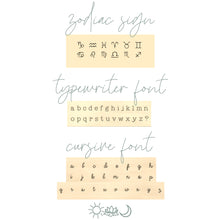 zodiac sign
♑ ♒ ♓ ♈ ♉ ♊
♋ ♌ ♍ ♎ ♏ ♐
typewriter font
abcdefghijklmn
opqrstuvwxyz?
cursive font
a b c d e f g h
i j k l m n o p q
r s t u v w x y z